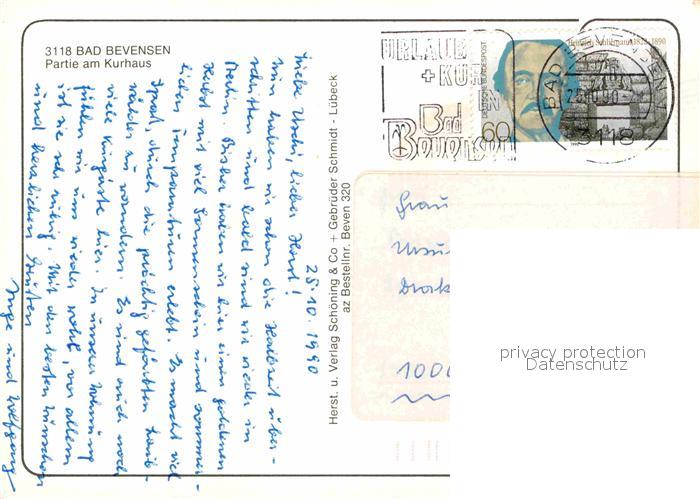 3118 BAD BEVENSEN
Partie am Kurhaus
25.10.1990
Liebe Uschi, lieber Horst!
Nun haben wir schon die Halbzeit über-
schritten und bald sind wir wieder in
Berlin. Bisher haben wir hier einen goldenen
Herbst mit viel Sonnenschein und sommer-
lichen Temperaturen erlebt. Es macht viel
Spaß, durch die prächtig gefärbten Laub-
wälder zu wandern. Es sind auch noch
viele Kurgäste hier. In unserer Wohnung
fühlen wir uns wieder wohl, vor allem
ist sie sehr ruhig. Mit den besten Wünschen
und herzlichen Grüßen
Inge und Wolfgang
Herst. u. Verlag Schöning & Co + Gebrüder Schmidt - Lübeck
az Bestellnr. Beven 320
URLAUB
+ KUR
IN
Bad
Bevensen
DEUTSCHE BUNDESPOST
60
Heinrich Schliemann 1822-1890
BAD BEVENSEN
3118
Frau
1000
privacy protection
Datenschutz